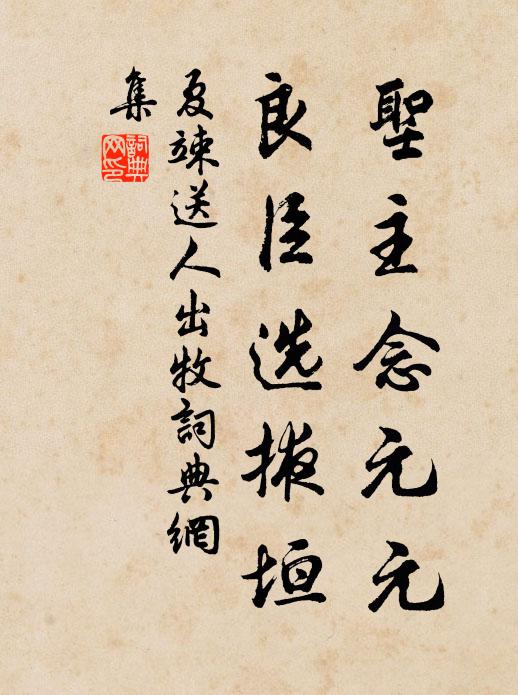 聖主念元元
良臣选掖垣
夏竦送人出牧詞典網
集
詞典網印